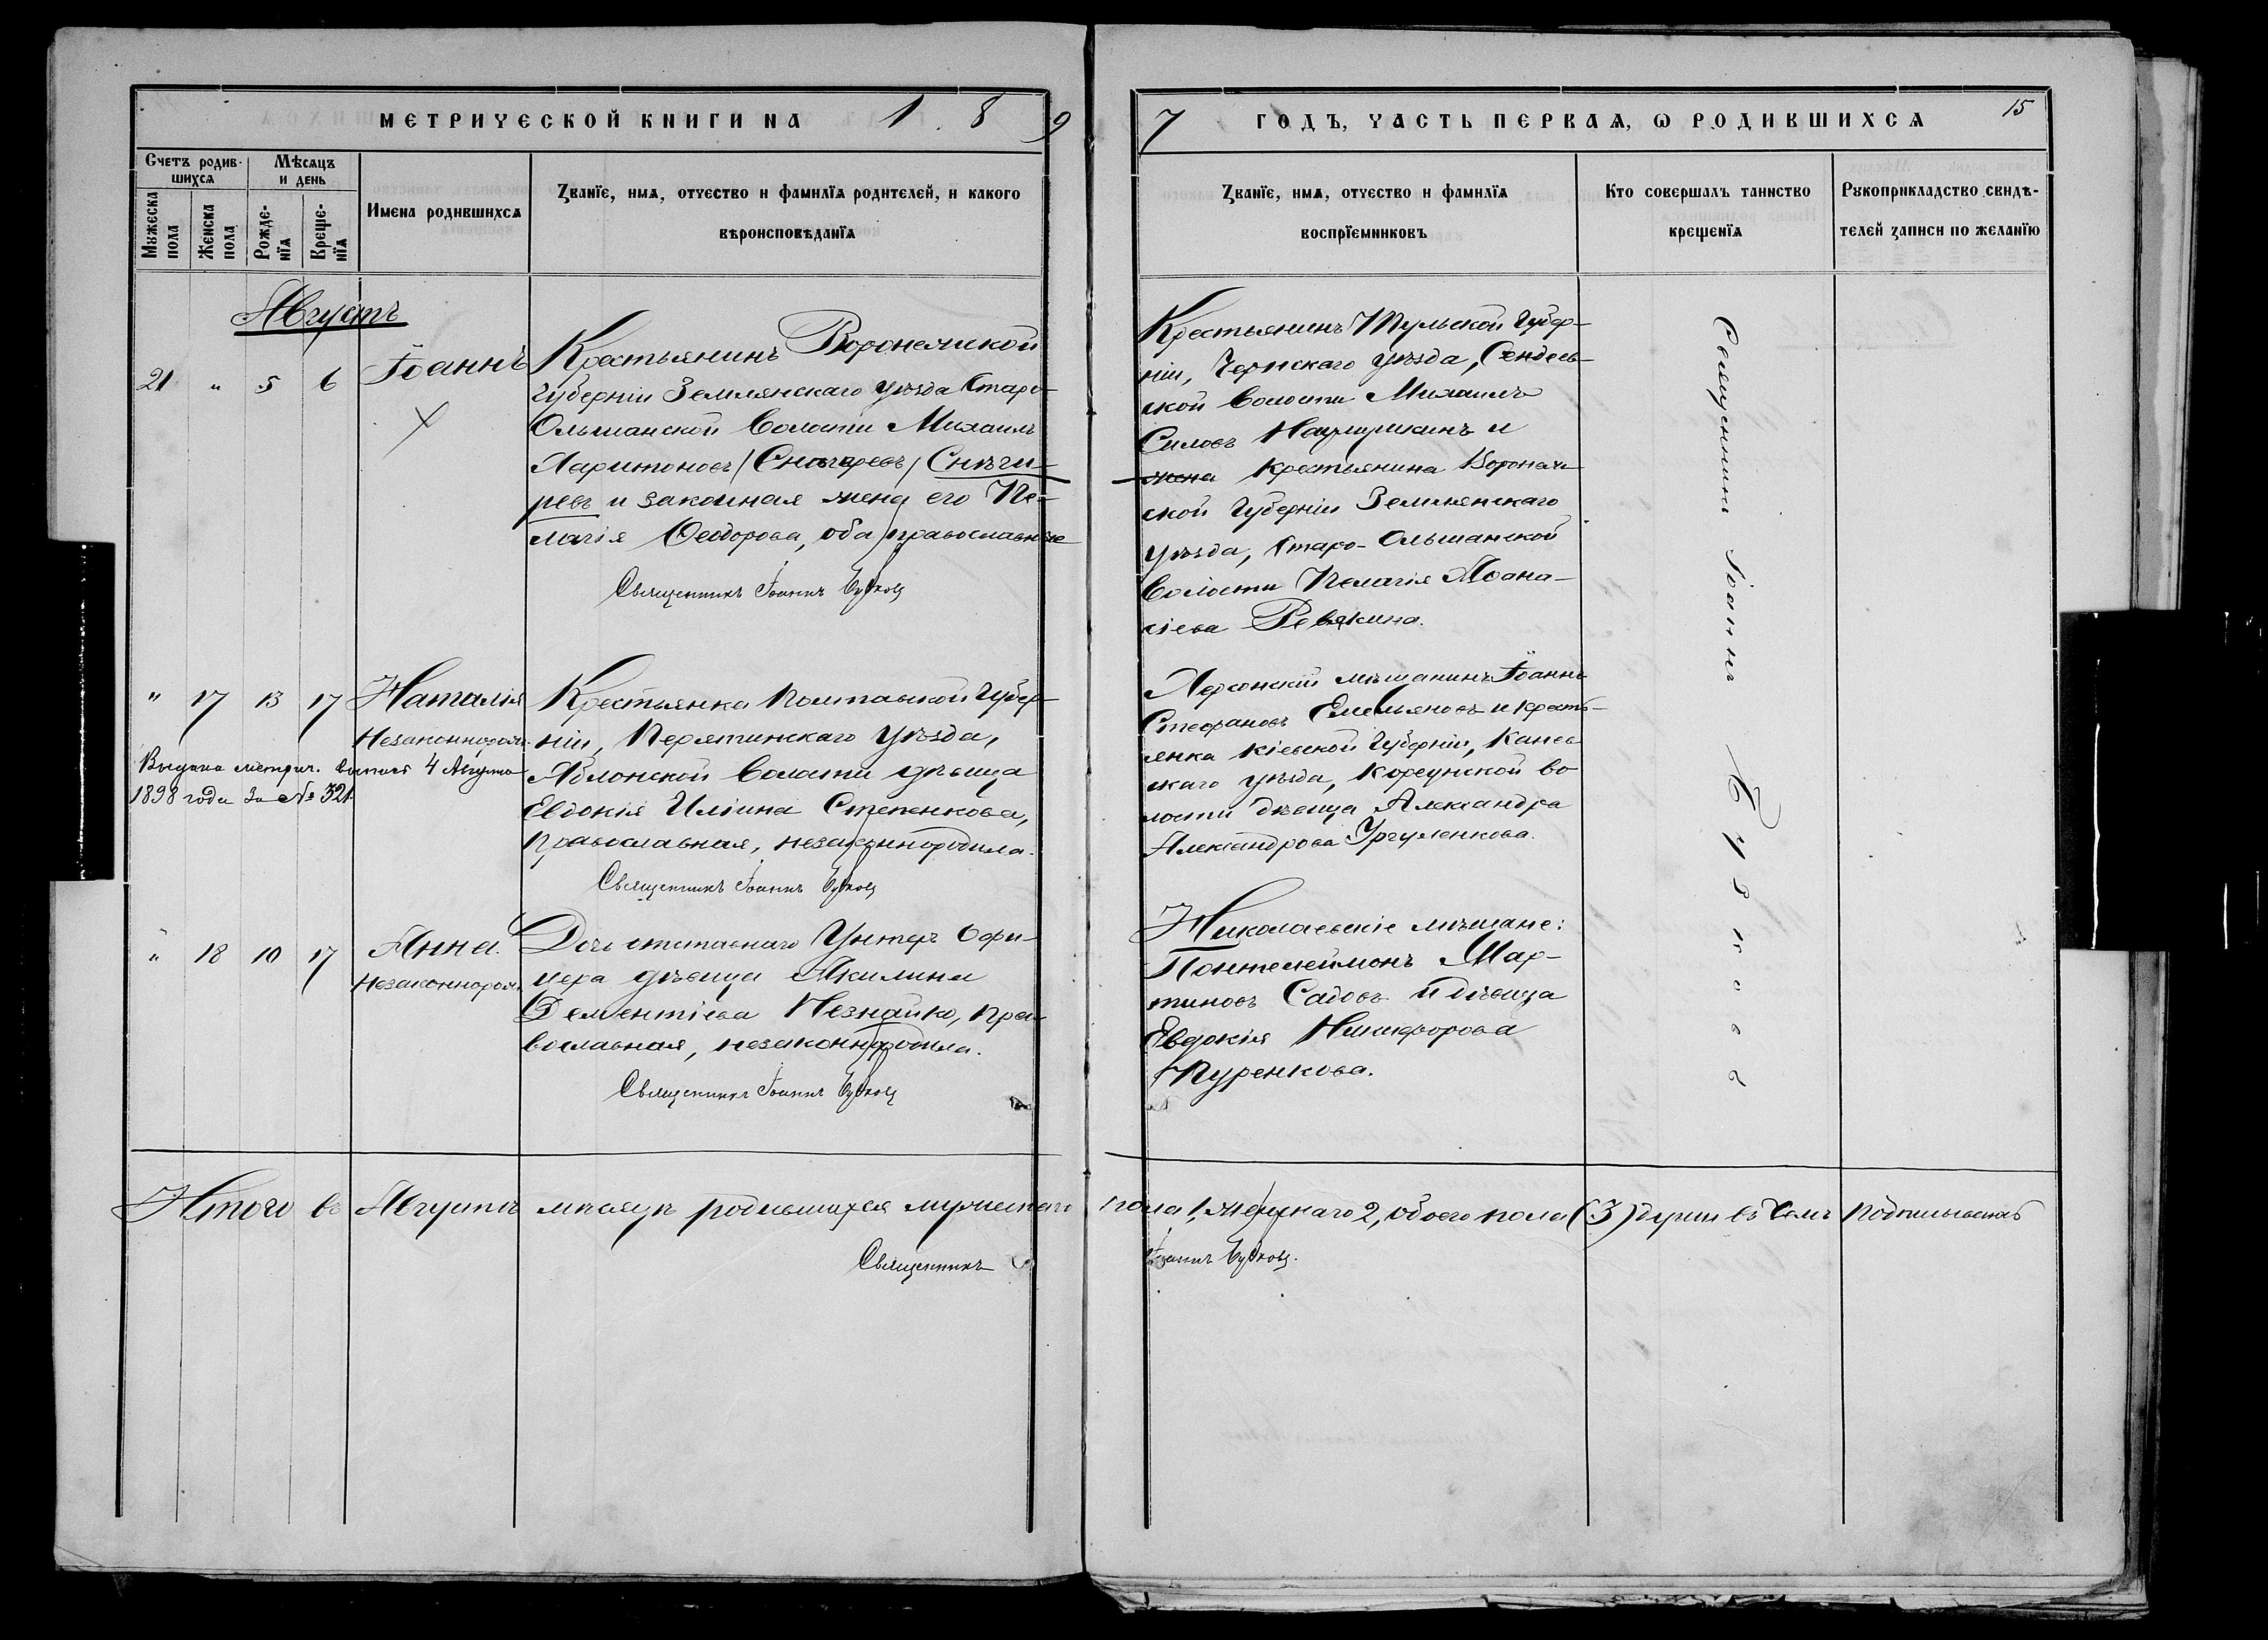 МЕТРИЧЕСКОЙ КНИГИ НА 1 8 9
7 ГОДЪ, ЧАСТЬ ПЕРВАЯ, Ѡ РОДИВШИХСЯ
15
Счетъ родив-
шихся
Мѣсяцъ
и день
Мужеска
пола
Женска
пола
Рожде-
нїя
Креще-
нїя
Имена родившихся
Званїе, имя, отчество и фамилїя родителей, и какого
вѣроисповѣданїя
Званїе, имя, отчество и фамилїя
воспрїемниковъ
Кто совершалъ таинство
крещенїя
Рукоприкладство свидѣ-
телей записи по желанїю
Августъ
21 " 5 6
Іоаннъ
Крестьянинъ Воронежской
Губерніи Землянскаго уѣзда Старо-
Ольшанской Волости Михаилъ
Харитоновъ /Снѣгаревъ/ Снѣги-
ревъ и законная жена его Пе-
лагія Ѳеодорова, оба православные
Священникъ Іоаннъ
Крестьянинъ Тульской Губер-
ніи, Чернскаго уѣзда,
ской Волости Михаилъ
Силовъ и
жена крестьянина Воронеж-
ской Губерніи Землянскаго
уѣзда, Старо-Ольшанской
Волости Пелагія Аѳана-
сіева Ревякина.
Священникъ Іоаннъ
" 17 13 17
Наталія
Незаконнорожд.
Выдана метрич. выпись 4 Августа
1898 года за № 321.
Крестьянка Полтавской Губер-
ніи, Пирятинскаго уѣзда,
Яблонской Волости дѣвица
Евдокія Иліина Степенкова,
Православная, незаконнородила.
Священникъ Іоаннъ
Херсонскій мѣщанинъ Іоаннъ
Стефановъ Емельяновъ и крестъ-
янка Кіевской Губерніи, Канев-
скаго уѣзда, Корсунской во-
лости дѣвица Александра
Александрова
" 18 10 17
Анна.
Незаконнорож.
Дочь отставнаго Унтеръ Офи-
цера дѣвица Акилина
Дементіева Незнайко, пра-
вославная, незаконнородила.
Священникъ Іоаннъ
Николаевскіе мѣщане:
Пантелеймонъ Мар-
тиновъ Садовъ и дѣвица
Евдокія Никифорова
Пуренкова.
Итого въ Августѣ мѣсяцѣ родившихся мужескаго
пола 1, женскаго 2, обоего пола (3) души въ чемъ подписываюсь
Священникъ
Іоаннъ